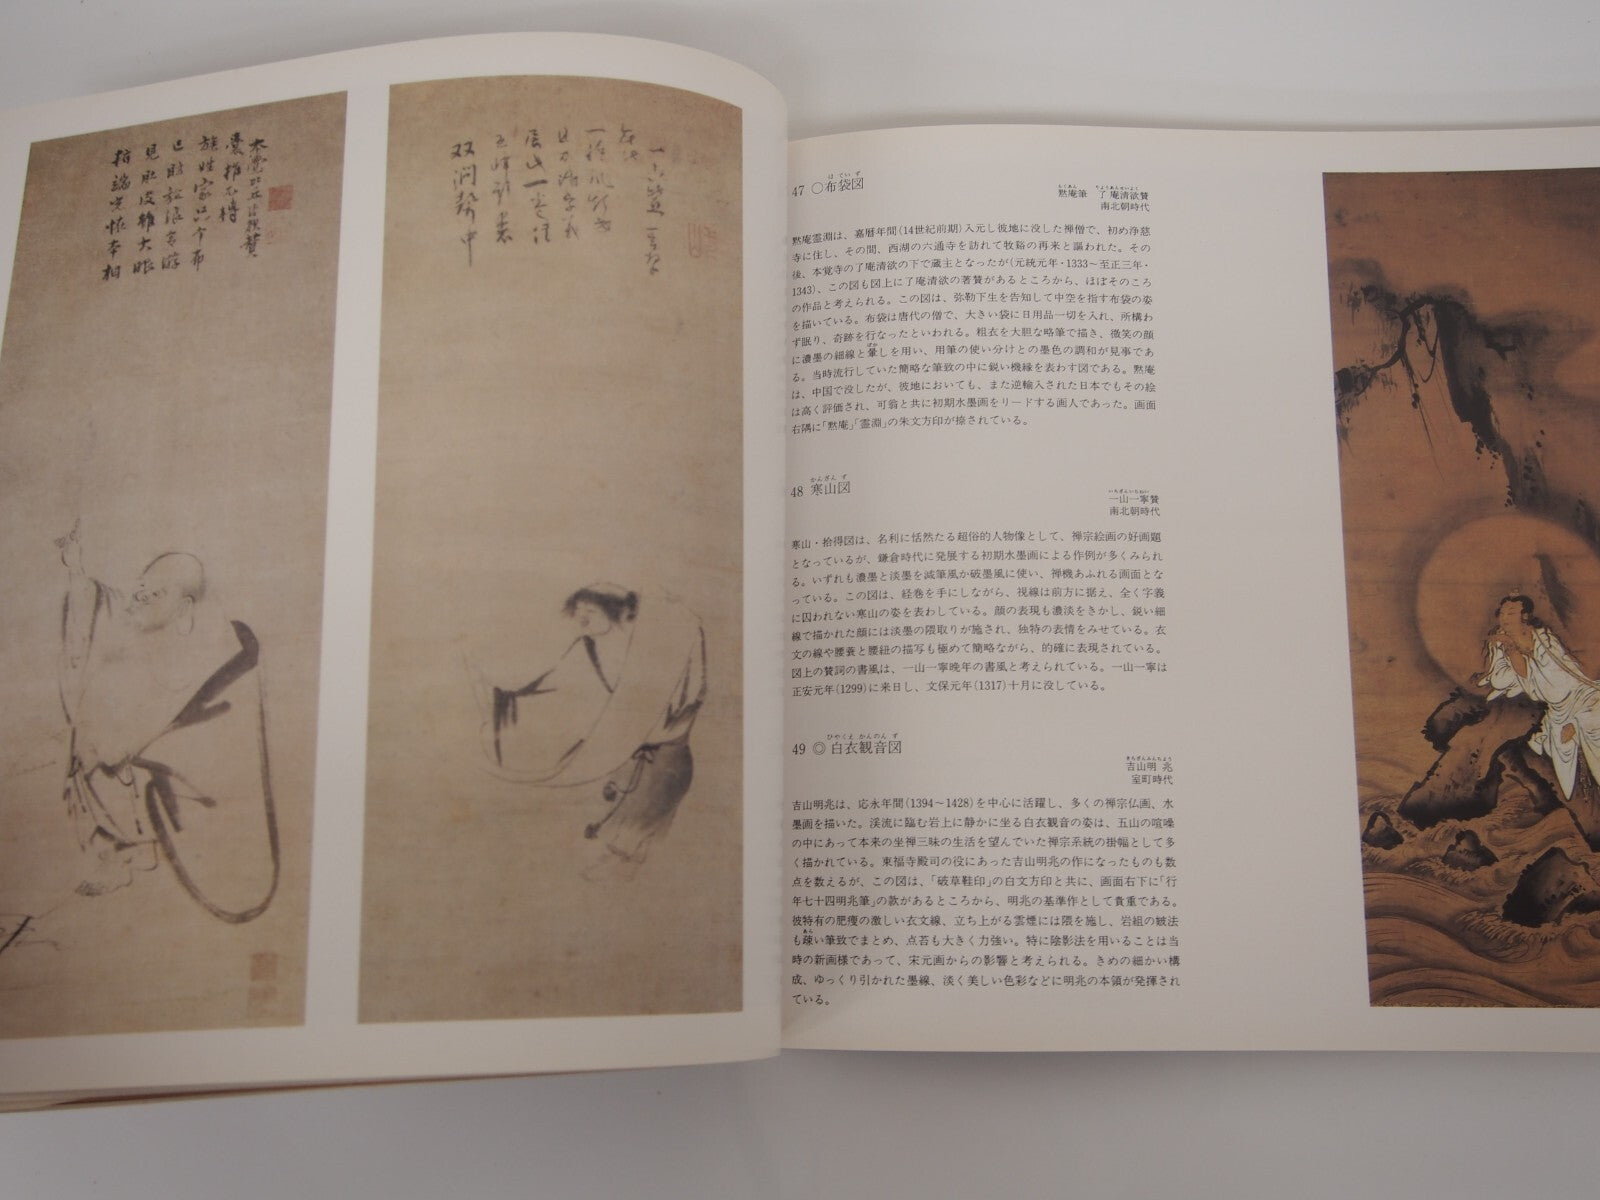 本覚比丘清欲賛
嚢挂一杖
族姓家品今布
見聞
指端
相
一山
双澗声中
はていず
47 ○布袋図
もくあん りょうあんせいよく
黙庵筆 了庵清欲賛
南北朝時代
黙庵霊淵は、嘉暦年間(14世紀前期)入元し彼地に没した禅僧で、初め浄慈
寺に住し、その間、西湖の六通寺を訪れて牧谿の再来と謳われた。その
後、本覚寺の了庵清欲の下で蔵主となったが(元統元年・1333〜至正三年・
1343)、この図も図上に了庵清欲の著賛があるところから、ほぼそのころ
の作品と考えられる。この図は、弥勒下生を告知して中空を指す布袋の姿
を描いている。布袋は唐代の僧で、大きい袋に日用品一切を入れ、所構わ
ず眠り、奇跡を行なったといわれる。粗衣を大胆な略筆で描き、微笑の顔
に濃墨の細線と暈しを用い、用筆の使い分けとの墨色の調和が見事であ
る。当時流行していた簡略な筆致の中に鋭い機縁を表わす図である。黙庵
は、中国で没したが、彼地においても、また逆輸入された日本でもその絵
は高く評価され、可翁と共に初期水墨画をリードする画人であった。画面
右隅に「黙庵」「霊淵」の朱文方印が捺されている。
かんざん ず
48 寒山図
いちざんいちねい
一山一寧賛
南北朝時代
寒山・拾得図は、名利に恬然たる超俗的人物像として、禅宗絵画の好画題
となっているが、鎌倉時代に発展する初期水墨画による作例が多くみられ
る。いずれも濃墨と淡墨を減筆風か破墨風に使い、禅機あふれる画面とな
っている。この図は、経巻を手にしながら、視線は前方に据え、全く字義
に囚われない寒山の姿を表わしている。顔の表現も濃淡をきかし、鋭い細
線で描かれた顔には淡墨の隈取りが施され、独特の表情をみせている。衣
文の線や腰蓑と腰紐の描写も極めて簡略ながら、的確に表現されている。
図上の賛詞の書風は、一山一寧晩年の書風と考えられている。一山一寧は
正安元年(1299)に来日し、文保元年(1317)十月に没している。
びやくえ かんのん ず
49 ◎白衣観音図
きちざんみんちょう
吉山明 兆
室町時代
吉山明兆は、応永年間(1394〜1428)を中心に活躍し、多くの禅宗仏画、水
墨画を描いた。渓流に臨む岩上に静かに坐る白衣観音の姿は、五山の喧噪
の中にあって本来の坐禅三昧の生活を望んでいた禅宗系統の掛幅として多
く描かれている。東福寺殿司の役にあった吉山明兆の作になったものも数
点を数えるが、この図は、「破草鞋印」の白文方印と共に、画面右下に「行
年七十四明兆筆」の款があるところから、明兆の基準作として貴重である。
彼特有の肥痩の激しい衣文線、立ち上がる雲煙には隈を施し、岩組の皴法
も疎い筆致でまとめ、点苔も大きく力強い。特に陰影法を用いることは当
時の新画様であって、宋元画からの影響と考えられる。きめの細かい構
成、ゆっくり引かれた墨線、淡く美しい色彩などに明兆の本領が発揮され
ている。